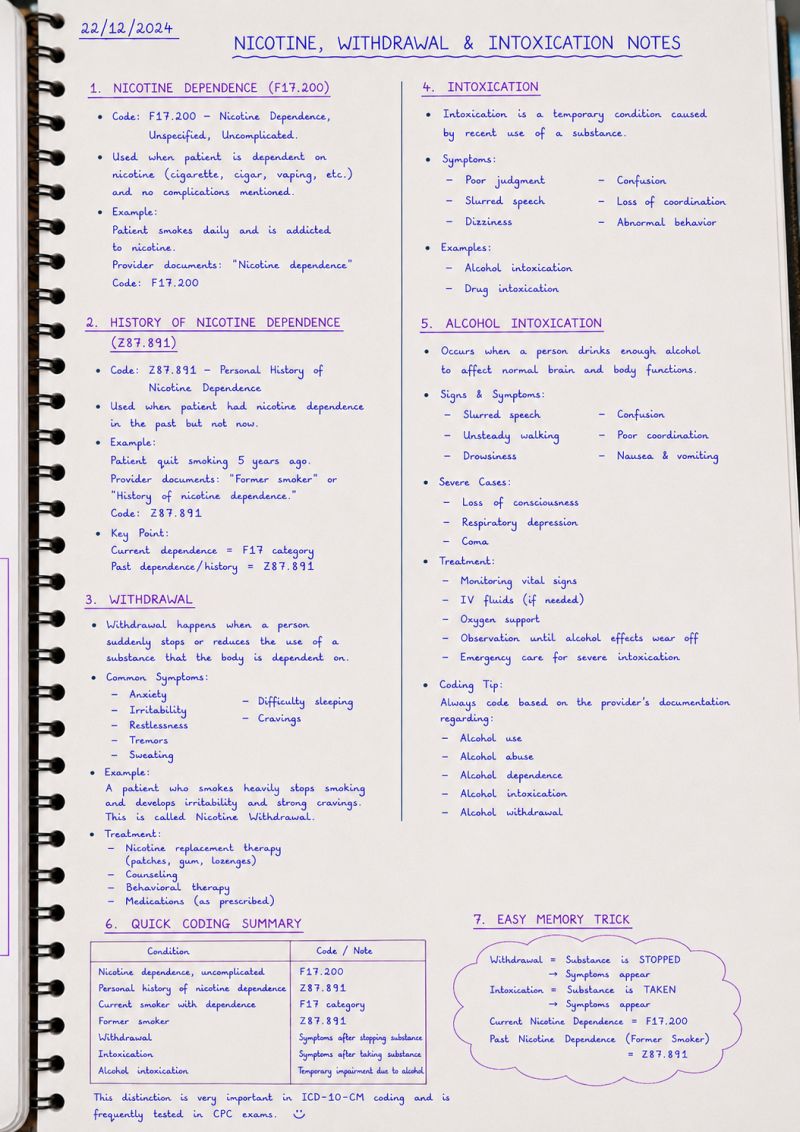 22/12/2024
NICOTINE, WITHDRAWAL & INTOXICATION NOTES
1. NICOTINE DEPENDENCE (F17.200)
• Code: F17.200 – Nicotine Dependence,
Unspecified, Uncomplicated.
• Used when patient is dependent on
nicotine (cigarette, cigar, vaping, etc.)
and no complications mentioned.
• Example:
Patient smokes daily and is addicted
to nicotine.
Provider documents: "Nicotine dependence"
Code: F17.200
2. HISTORY OF NICOTINE DEPENDENCE
(Z87.891)
• Code: Z87.891 – Personal History of
Nicotine Dependence
• Used when patient had nicotine dependence
in the past but not now.
• Example:
Patient quit smoking 5 years ago.
Provider documents: "Former smoker" or
"History of nicotine dependence."
Code: Z87.891
• Key Point:
Current dependence = F17 category
Past dependence/history = Z87.891
3. WITHDRAWAL
• Withdrawal happens when a person
suddenly stops or reduces the use of a
substance that the body is dependent on.
• Common Symptoms:
– Anxiety
– Irritability
– Restlessness
– Tremors
– Sweating
– Difficulty sleeping
– Cravings
• Example:
A patient who smokes heavily stops smoking
and develops irritability and strong cravings.
This is called Nicotine Withdrawal.
• Treatment:
– Nicotine replacement therapy
(patches, gum, lozenges)
– Counseling
– Behavioral therapy
– Medications (as prescribed)
4. INTOXICATION
• Intoxication is a temporary condition caused
by recent use of a substance.
• Symptoms:
– Poor judgment
– Slurred speech
– Dizziness
– Confusion
– Loss of coordination
– Abnormal behavior
• Examples:
– Alcohol intoxication
– Drug intoxication
5. ALCOHOL INTOXICATION
• Occurs when a person drinks enough alcohol
to affect normal brain and body functions.
• Signs & Symptoms:
– Slurred speech
– Unsteady walking
– Drowsiness
– Confusion
– Poor coordination
– Nausea & vomiting
• Severe Cases:
– Loss of consciousness
– Respiratory depression
– Coma
• Treatment:
– Monitoring vital signs
– IV fluids (if needed)
– Oxygen support
– Observation until alcohol effects wear off
– Emergency care for severe intoxication
• Coding Tip:
Always code based on the provider's documentation
regarding:
– Alcohol use
– Alcohol abuse
– Alcohol dependence
– Alcohol intoxication
– Alcohol withdrawal
6. QUICK CODING SUMMARY
Condition Code / Note
Nicotine dependence, uncomplicated F17.200
Personal history of nicotine dependence Z87.891
Current smoker with dependence F17 category
Former smoker Z87.891
Withdrawal Symptoms after stopping substance
Intoxication Symptoms after taking substance
Alcohol intoxication Temporary impairment due to alcohol
This distinction is very important in ICD-10-CM coding and is
frequently tested in CPC exams. ☺
7. EASY MEMORY TRICK
Withdrawal = Substance is STOPPED
→ Symptoms appear
Intoxication = Substance is TAKEN
→ Symptoms appear
Current Nicotine Dependence = F17.200
Past Nicotine Dependence (Former Smoker)
= Z87.891